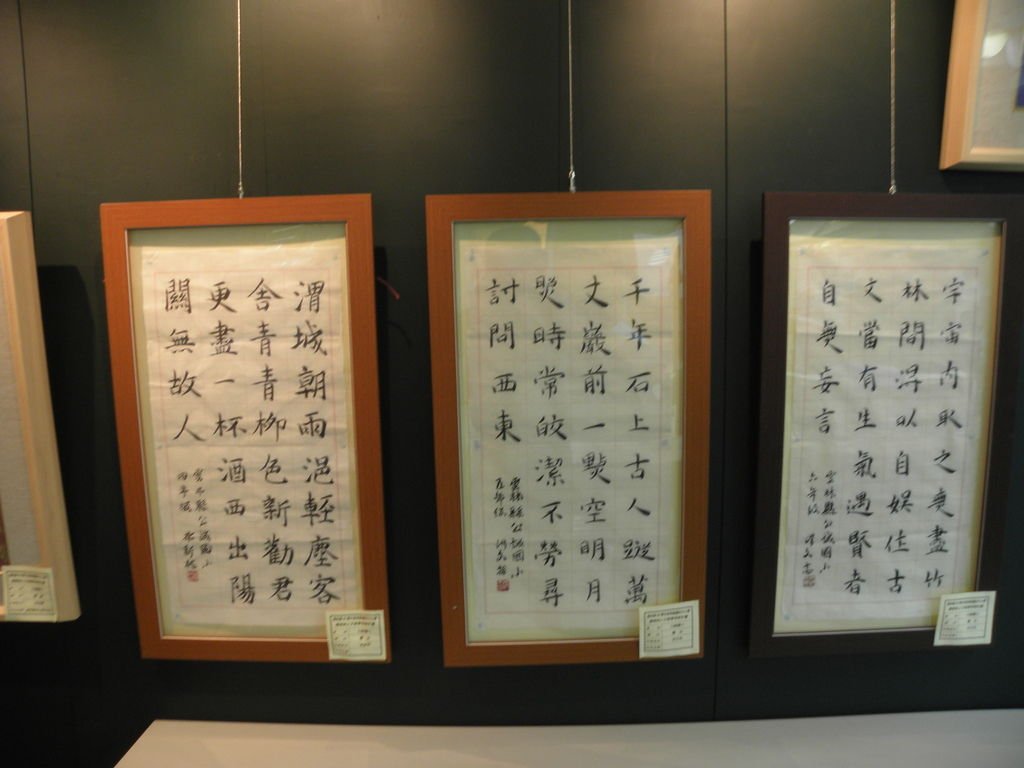 渭城朝雨浥輕塵客
舍青青柳色新勸君
更盡一杯酒西出陽
關無故人
雲林縣公誠國小
四年級
千年石上古人蹤萬
丈巖前一點空明月
照時常皎潔不勞尋
討問西東
雲林縣公誠國小
五年級
宇宙內取之無盡竹
林間得以自娛佳古
文當有生氣遇賢者
自無妄言
雲林縣公誠國小
六年級